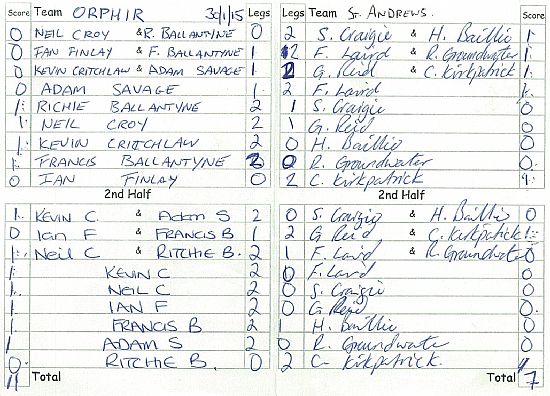 Score Team ORPHIR 30/1/15 Legs Legs Team St. ANDREWS. Score
0 NEIL CROY & R. BALLANTYNE 0 2 S. Craigie & H. Baillie 1
0 IAN FINLAY & F. BALLANTYNE 1 2 F. Laird & R. Groundwater 1
0 KEVIN CRITCHLAW & ADAM SAVAGE 1 2 G. Reid & C. Kirkpatrick 1
0 ADAM SAVAGE 1 2 F. Laird 1
1 RICHIE BALLANTYNE 2 1 S. Craigie 0
1 NEIL CROY 2 1 G. Reid 0
1 KEVIN CRITCHLAW 2 0 H. Baillie 0
1 FRANCIS BALLANTYNE 2 0 R. Groundwater 0
0 IAN FINLAY 0 2 C. Kirkpatrick 1
2nd Half 2nd Half
1 KEVIN C. & Adam S 2 0 S. Craigie & H. Baillie 0
0 Ian F & FRANCIS B 1 2 G Reid & C. Kirkpatrick 1
1 Neil C & RITCHIE B. 2 1 F. Laird & R. Groundwater 0
1 KEVIN C 2 0 F. Laird 0
1 NEIL C. 2 0 S. Craigie 0
1 IAN F 2 0 G. Reid 0
1 FRANCIS B 2 1 H. Baillie 0
1 ADAM S 2 0 R. Groundwater 0
0 RITCHIE B. 0 2 C. Kirkpatrick. 1
11 Total Total 7